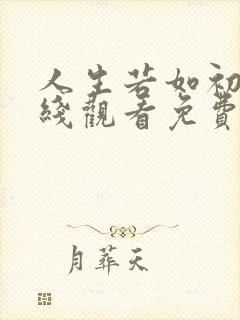 人生若如初
綫觀看免費
月葬天